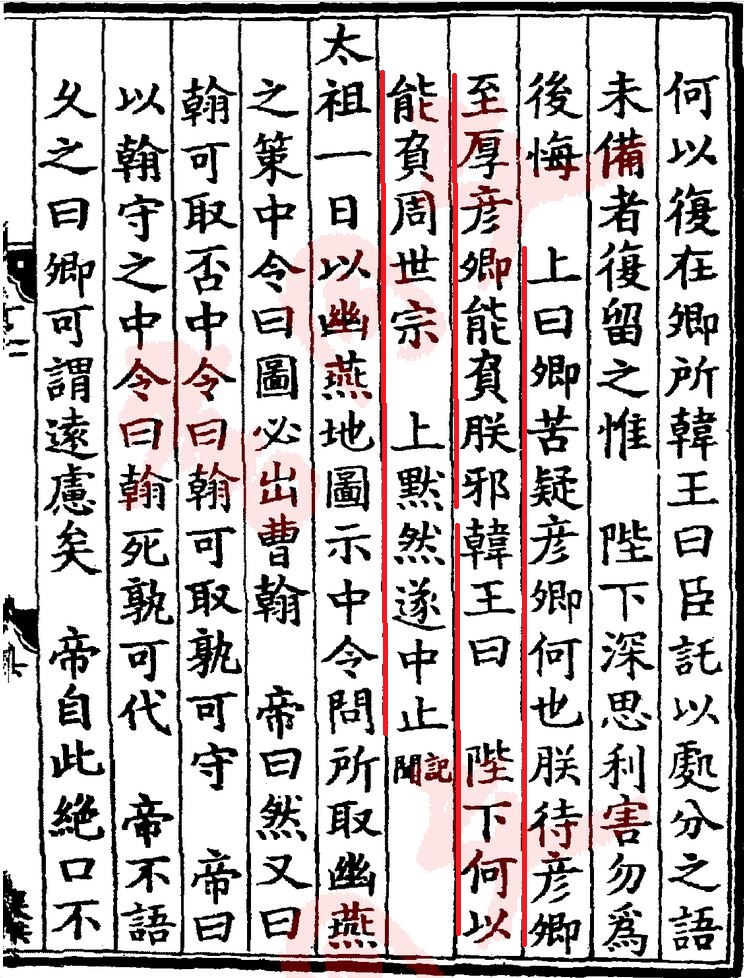 何以復在卿所韓王曰臣託以處分之語
未備者復留之惟　陛下深思利害勿爲
後悔　上曰卿苦疑彦卿何也朕待彦卿
至厚彦卿能負朕邪韓王曰　陛下何以
能負周世宗　上黙然遂中止記聞
太祖一日以幽燕地圖示中令問所取幽燕
之策中令曰圖必出曹翰　帝曰然又曰
翰可取否中令曰翰可取孰可守　帝曰
以翰守之中令曰翰死孰可代　帝不語
乆之曰卿可謂遠慮矣　帝自此絶口不